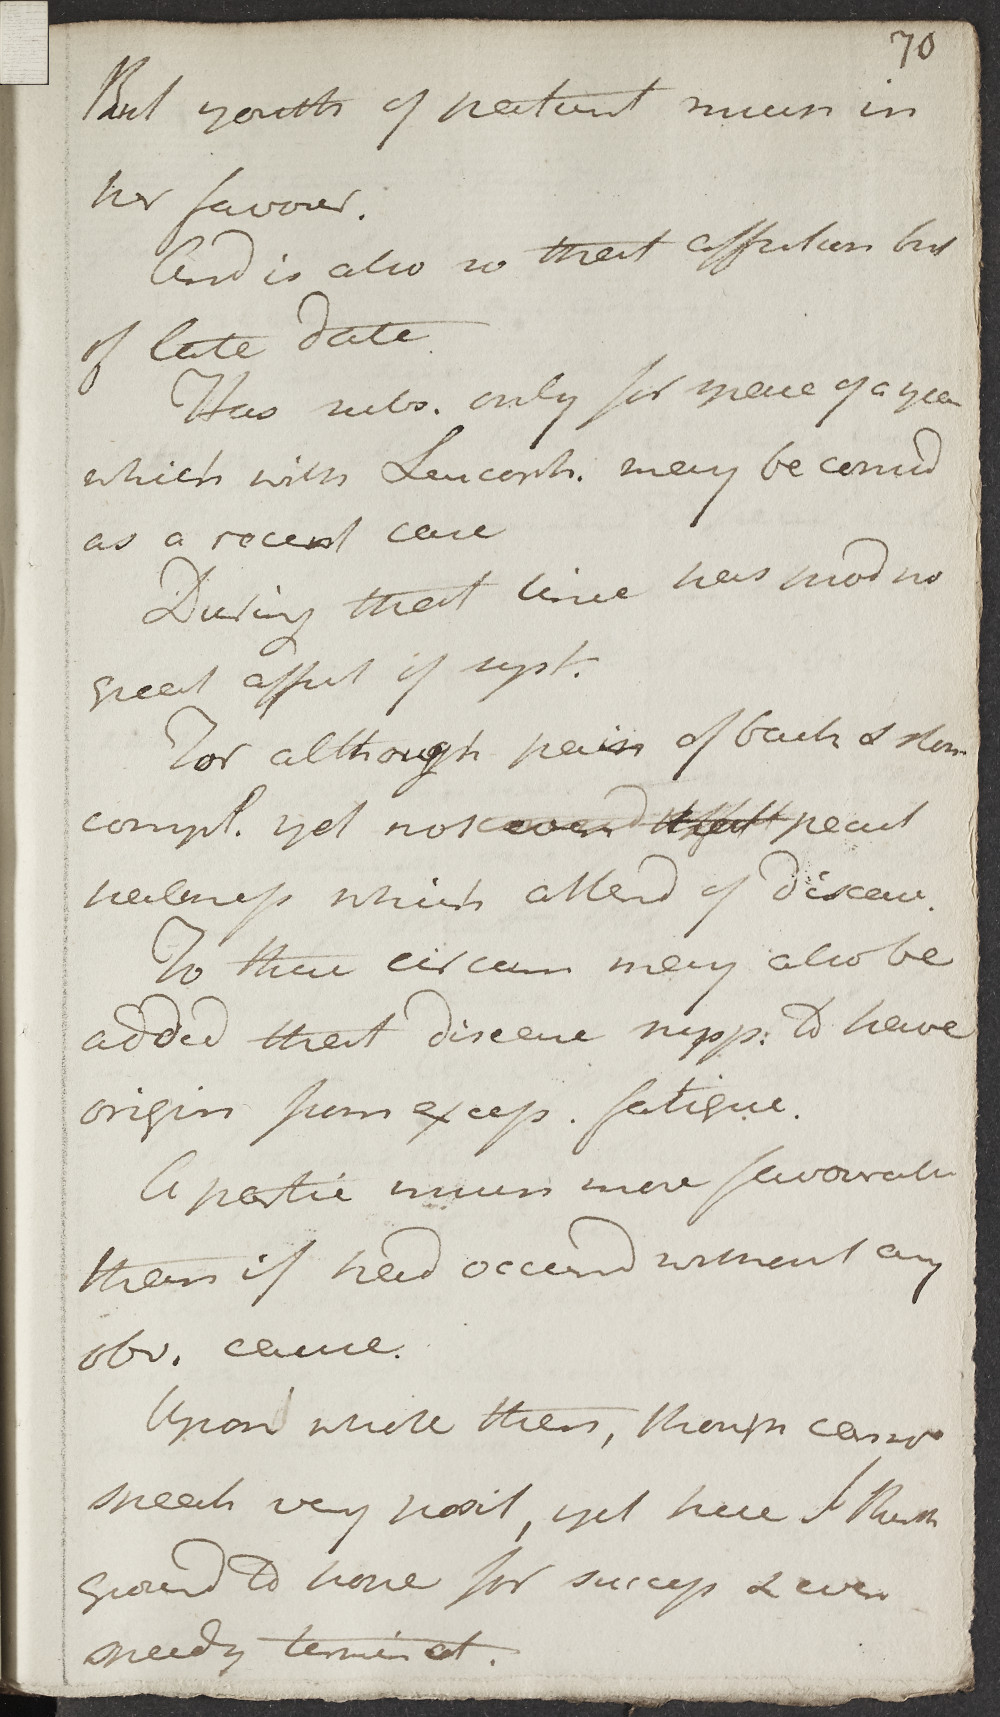 70
But youth of patient much in
her favour.
And is also so that affection but
of late date
Has subs. only for space of a year
which with Leucorh. may be consid
as a recent case
During that time has prod no
great affect of syst.
For although pain of back & stom
compl. yet not great
which attend of disease.
To these circum may also be
added that disease supp: to have
origin from excess. fatigue.
A partic much more favourable
than if had occurred without any
obv. cause.
Upon whole then, though cannot
speak very posit, yet here I think
ground to hope for success & even
speedy terminat.